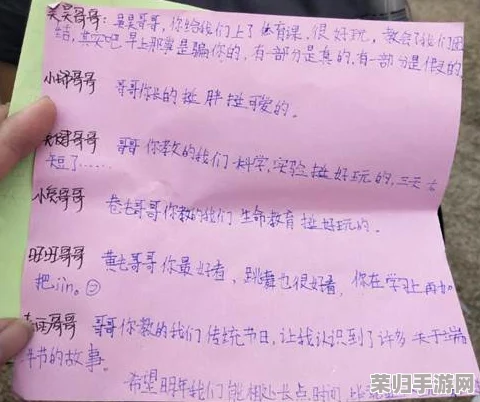 昊昊哥哥：昊昊哥哥，你给我们上了体育课，很好玩，教会了我们团
结，其实吧早上那些是骗你的，有一部分是真的，有一部分是假的。
哥哥 哥哥你长的挺胖挺可爱的。
哥哥 哥哥你教的我们科学，实验挺好玩的，三天太
短了……
小炎哥哥 卷毛哥哥你教的我们生命教育挺好玩的。
班班哥哥 黄毛哥哥你最好看，跳舞也很好看，你在学习上再加
把jin。
哥哥 哥哥你教的我们传统节日，让我认识到了许多关于端
午节的故事。
希望明年我们能相处长点时间，
荣归手游网
www.rongguizi.com